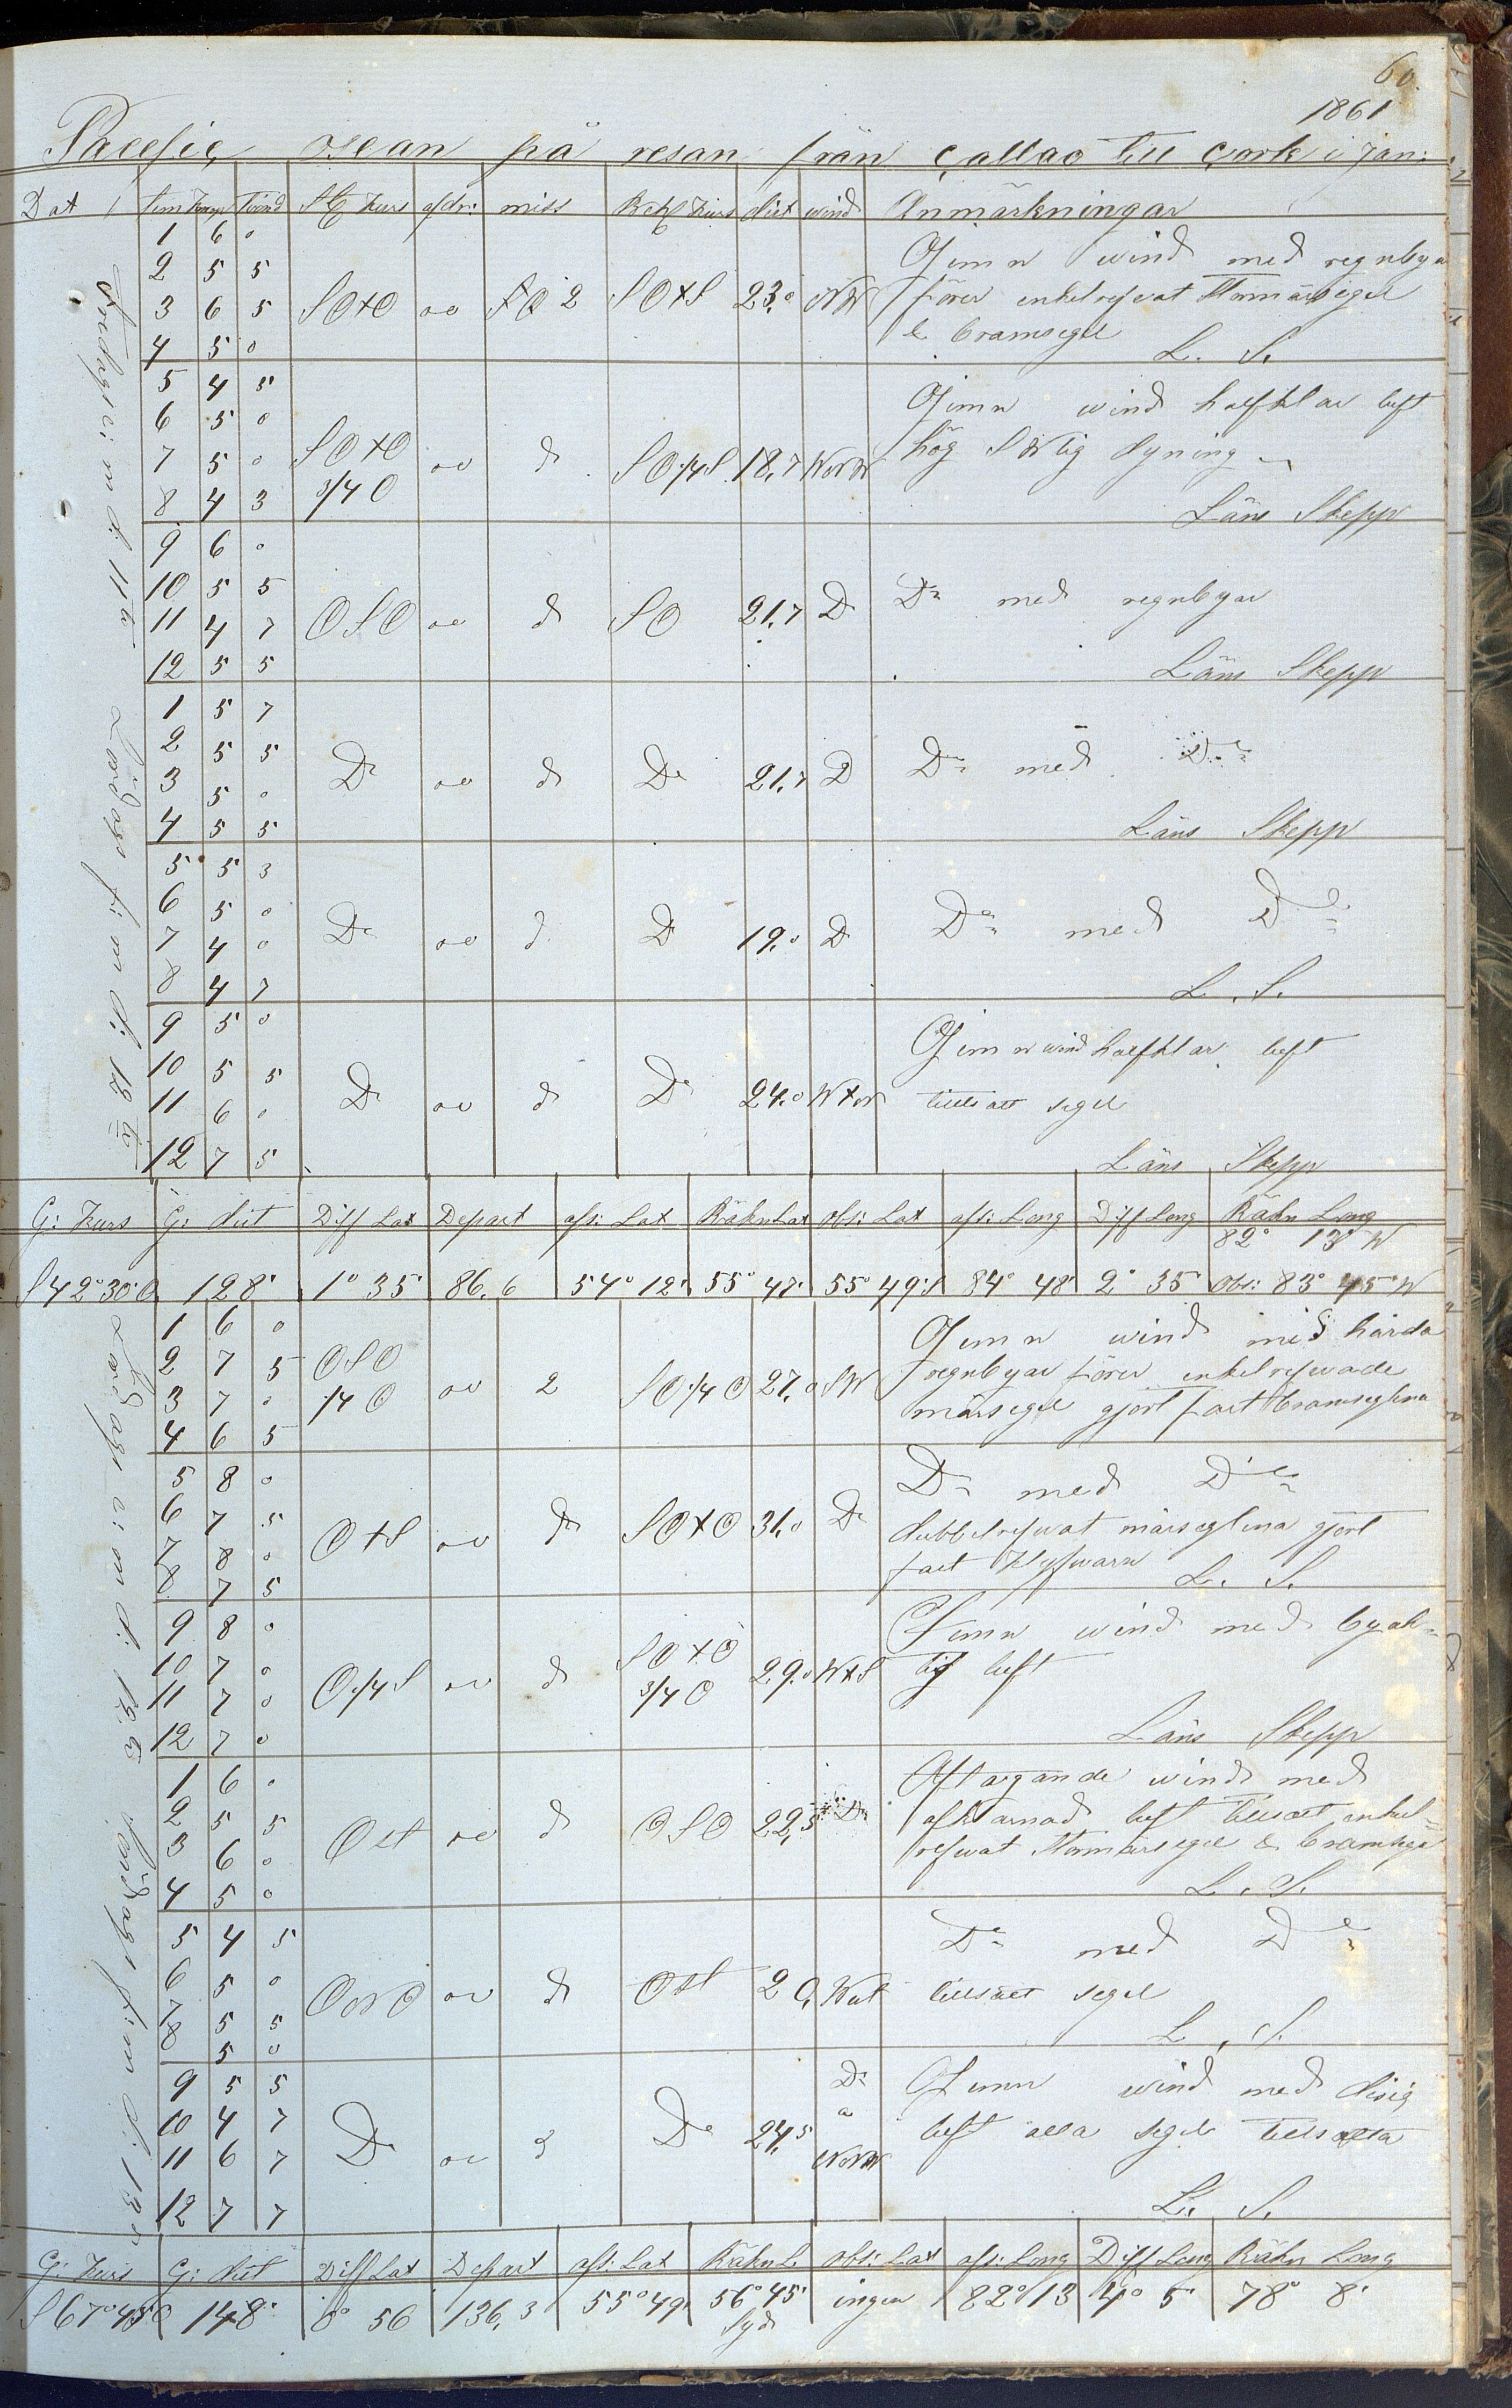 60.
1861
Pacific osean på resan från Callao till Cork i Jan:
Dat tim Knop St Kurs afdr: miss Beh Kurs dist wind Anmärkningar
Fredag e: m d: 11te
1 6 0
2 5 5
3 6 5 SO+O oo 2 SO+S 23.0 NW
4 5 0
Jemn wind med regnbyar
förer enkelrefwat Stormärsegel
& bramsegel
L. S.
5 4 5
6 5 0
7 5 0 SO+O 3/4 O oo d SO 1/4 S 18,7 WNW
8 4 3
Jemn wind halfklar luft
hög SWlig dyning
Läns Skepp
9 6 0
10 5 5
11 4 7 OSO oo d SO 21,7 Do
12 5 5
Do med regnbyar
Läns Skepp
Lördag f: m d: 12te
1 5 7
2 5 5
3 5 0 Do oo d Do 21,7 D
4 5 5
Do med Do
Läns Skepp
5 5 3
6 5 0
7 4 0 Do oo d D 19.0 D
8 4 7
Do med Do
L. S.
9 5 0
10 5 5
11 6 0 Do oo d Do 24.0 W+N
12 7 5
Jemn wind halfklar luft
tillsatt segel
Läns Skepp
G: Kurs G: dist Diff Lat Depart afs: Lat Räkn Lat obs: Lat afs: Long Diff Long Räkn Long
82° 13' W
S 42° 30' O 128' 1° 35' 86,6 54° 12' 55° 47' 55° 49' S 84° 48' 2° 35' Obs: 83° 45' W
Lördag e: m d: 12te
1 6 0
2 7 5
3 7 0 OSO 1/4 O oo 2 SO 1/4 O 27,0 SW
4 6 5
Jemn wind med hårda
regnbyar förer enkelrefwade
märsegel gjort fast bramseglena
5 8 0
6 7 5
7 8 0 O+S oo do SO+O 31.0 Do
8 7 5
Do med Do
dubbelrefwat märseglena gjort
fast Klyfwarn L. S.
9 8 0
10 7 0
11 7 0 O 1/4 S oo d SO+O 3/4 O 29.0 W+S
12 7 0
Jemn wind med byak-
tig luft
Läns Skepp
Söndag f: m d: 13
1 6 0
2 5 5
3 6 0 Ost oo d OSO 22,5 Do
4 5 0
Aftagande wind med
afklarnad luft tillsatt enkel-
refwat Stormärsegel & bramsegel
L. S.
5 4 5
6 5 0
7 5 5 ONO oo d Ost 20, West
8 5 0
Do med Do
tillsatt segel
L. S.
9 5 5
10 4 7
11 6 7 Do oo d Do 24,5 Do a WNW
12 7 7
Jemn wind med disig
luft alla segel tillsatta
L. S.
G: Kurs G: dist Diff Lat Depart afs: Lat Räkn L. obs: Lat afs: Long Diff Long Räkn Long
S 67° 45' O 148' 0° 56 136,3 55° 49' 56° 45' Syd ingen 82° 13 4° 5' 78° 8'